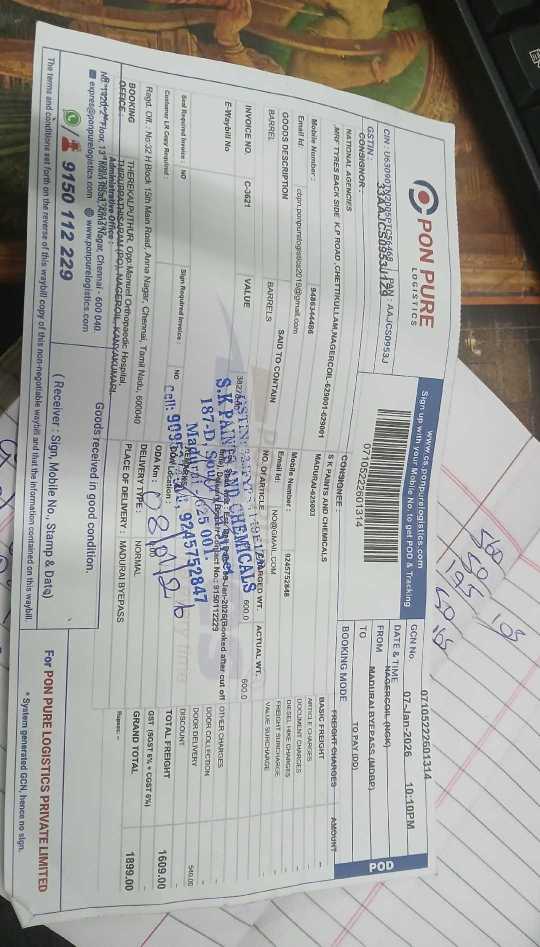 PON PURE
LOGISTICS
www.cs.ponpurelogistics.com
Sign up with your Mobile No. to get POD & Tracking
07105222601314
GCN No 07105222601314
DATE & TIME 07-Jan-2026 10:10PM
FROM NAGERCOIL (NGK)
TO MADURAI BYEPASS (MDBP)
POD
PAN : AAJCS0953J
GSTIN : 33AAJCS0953J1Z9
CONSIGNOR :
NATIONAL AGENCIES
MRF TYRES BACK SIDE K.P ROAD ,CHETTIKULLAM,NAGERCOIL-629001-629001
Mobile Number : 9486344486
Email Id:
CONSIGNEE :
S K PAINTS AND CHEMICALS
MADURAI-625003
Mobile Number : 9245752848
Email Id: NO@GMAIL.COM
BOOKING MODE TO PAY (DD)
FREIGHT CHARGES AMOUNT
BASIC FREIGHT -
ARTICLE CHARGES
DOCUMENT CHARGES
DIESEL HIKE CHARGES
FREIGHT SURCHARGE
VALUE SURCHARGE
OTHER CHARGES
DOOR COLLECTION
DOOR DELIVERY 540.00
DISCOUNT
TOTAL FREIGHT 1609.00
GST (SGST 6% + CGST 6%)
GRAND TOTAL 1899.00
Rupees: --
GOODS DESCRIPTION SAID TO CONTAIN NO.OF ARTICLE CHARGED WT. ACTUAL WT.
BARREL BARRELS 600.0 600.0
INVOICE NO. C-3621 VALUE
E-Waybill No
S.K PAINTS AND CHEMICALS
187-D, South
Madurai-625 001.
Cell: 9245752847
Seal Required Invoice : NO Sign Required Invoice : NO
Customer LR Copy Required :
ODA Km :
DELIVERY TYPE : NORMAL
PLACE OF DELIVERY : MADURAI BYEPASS
Regd. Off. : No:32 H Block 15th Main Road, Anna Nagar, Chennai, Tamil Nadu, 600040
BOOKING OFFICE : THEREKALPUTHUR, Opp: Manual Orthopaedic Hospital,
THIRUPATHISARAM (PO), NAGERCOIL, KANYAKUMARI,
Administrative Office :
express@ponpurelogistics.com www.ponpurelogistics.com
9150 112 229
Goods received in good condition.
( Receiver : Sign, Mobile No., Stamp & Date)
For PON PURE LOGISTICS PRIVATE LIMITED
* System generated GCN, hence no sign.
The terms and conditions set forth on the reverse of this waybill copy of this non-negotiable waybill and that the information contained on this waybill.
500
50
195
50
105